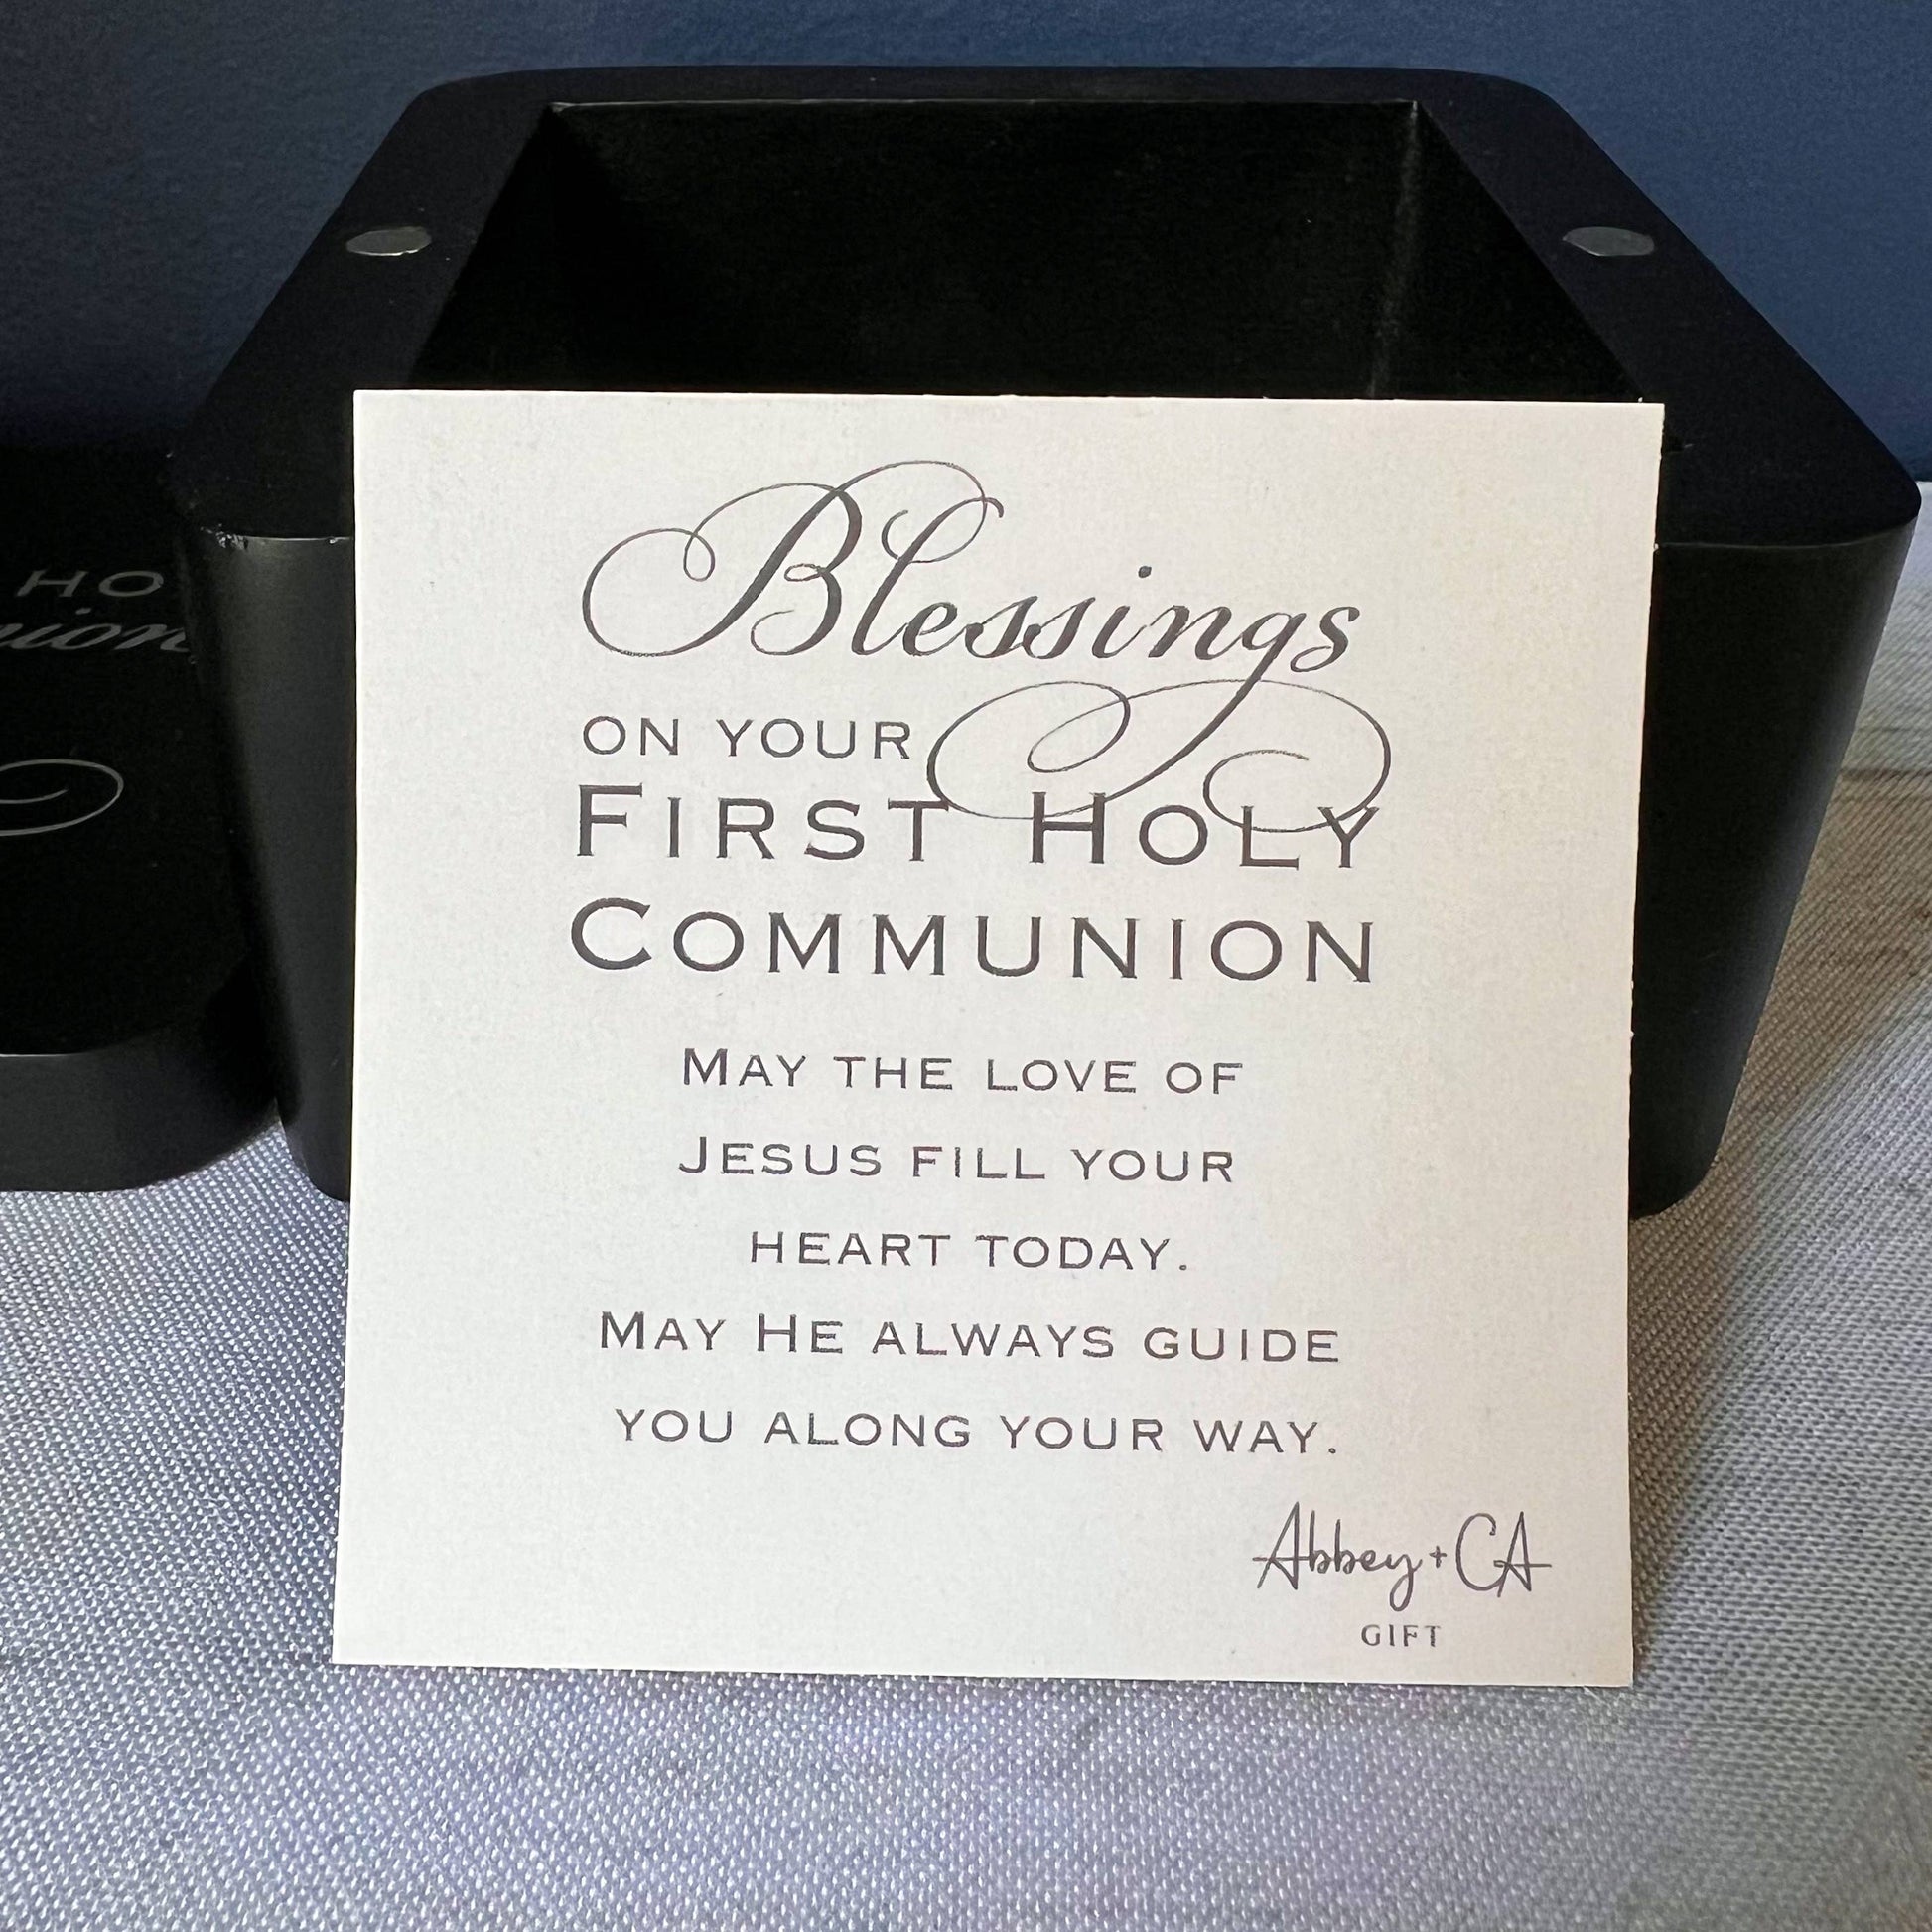 Blessings
ON YOUR
FIRST HOLY
COMMUNION
MAY THE LOVE OF
JESUS FILL YOUR
HEART TODAY.
MAY HE ALWAYS GUIDE
YOU ALONG YOUR WAY.
Abbey + CA
GIFT
HO
nion